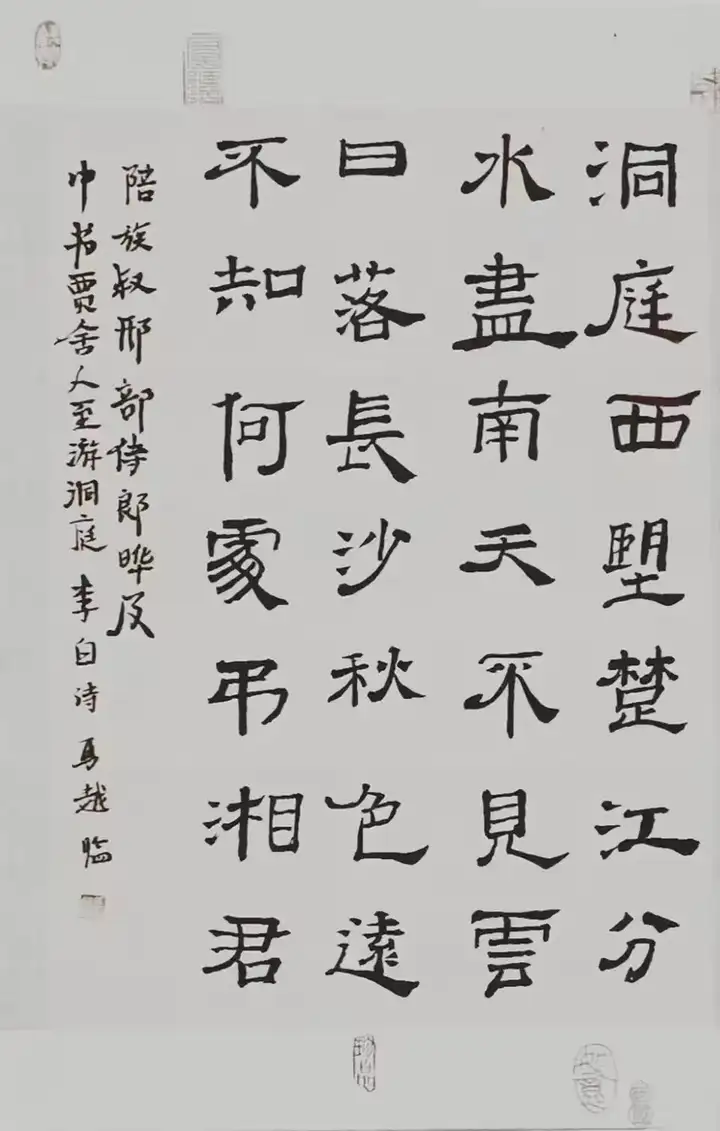 洞庭西望楚江分
水盡南天不見雲
日落長沙秋色遠
不知何處弔湘君
陪族叔邢部侍郎晔及
中书賈舍人至游洞庭 李白诗 馬越 臨